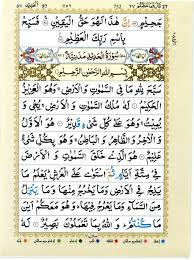 قال فما خطبكم ٢٧
الحديد ٥٧
جَحِيمٍ ۝ إِنَّ هَٰذَا لَهُوَ حَقُّ الْيَقِينِ ۝ فَسَبِّحْ
بِاسْمِ رَبِّكَ الْعَظِيمِ ۝
سُورَةُ الْحَدِيدِ مَدَنِيَّةٌ
بِسْمِ اللَّهِ الرَّحْمَٰنِ الرَّحِيمِ
سَبَّحَ لِلَّهِ مَا فِي السَّمَٰوَٰتِ وَالْأَرْضِ وَهُوَ الْعَزِيزُ
الْحَكِيمُ ۝ لَهُ مُلْكُ السَّمَٰوَٰتِ وَالْأَرْضِ يُحْيِي
وَيُمِيتُ وَهُوَ عَلَىٰ كُلِّ شَيْءٍ قَدِيرٌ ۝ هُوَ الْأَوَّلُ
وَالْآخِرُ وَالظَّاهِرُ وَالْبَاطِنُ وَهُوَ بِكُلِّ شَيْءٍ
عَلِيمٌ ۝ هُوَ الَّذِي خَلَقَ السَّمَٰوَٰتِ وَالْأَرْضَ
فِي سِتَّةِ أَيَّامٍ ثُمَّ اسْتَوَىٰ عَلَى الْعَرْشِ يَعْلَمُ
مَا يَلِجُ فِي الْأَرْضِ وَمَا يَخْرُجُ مِنْهَا وَمَا يَنْزِلُ
مِنَ السَّمَاءِ وَمَا يَعْرُجُ فِيهَا وَهُوَ مَعَكُمْ أَيْنَ
مَا كُنْتُمْ وَاللَّهُ بِمَا تَعْمَلُونَ بَصِيرٌ ۝